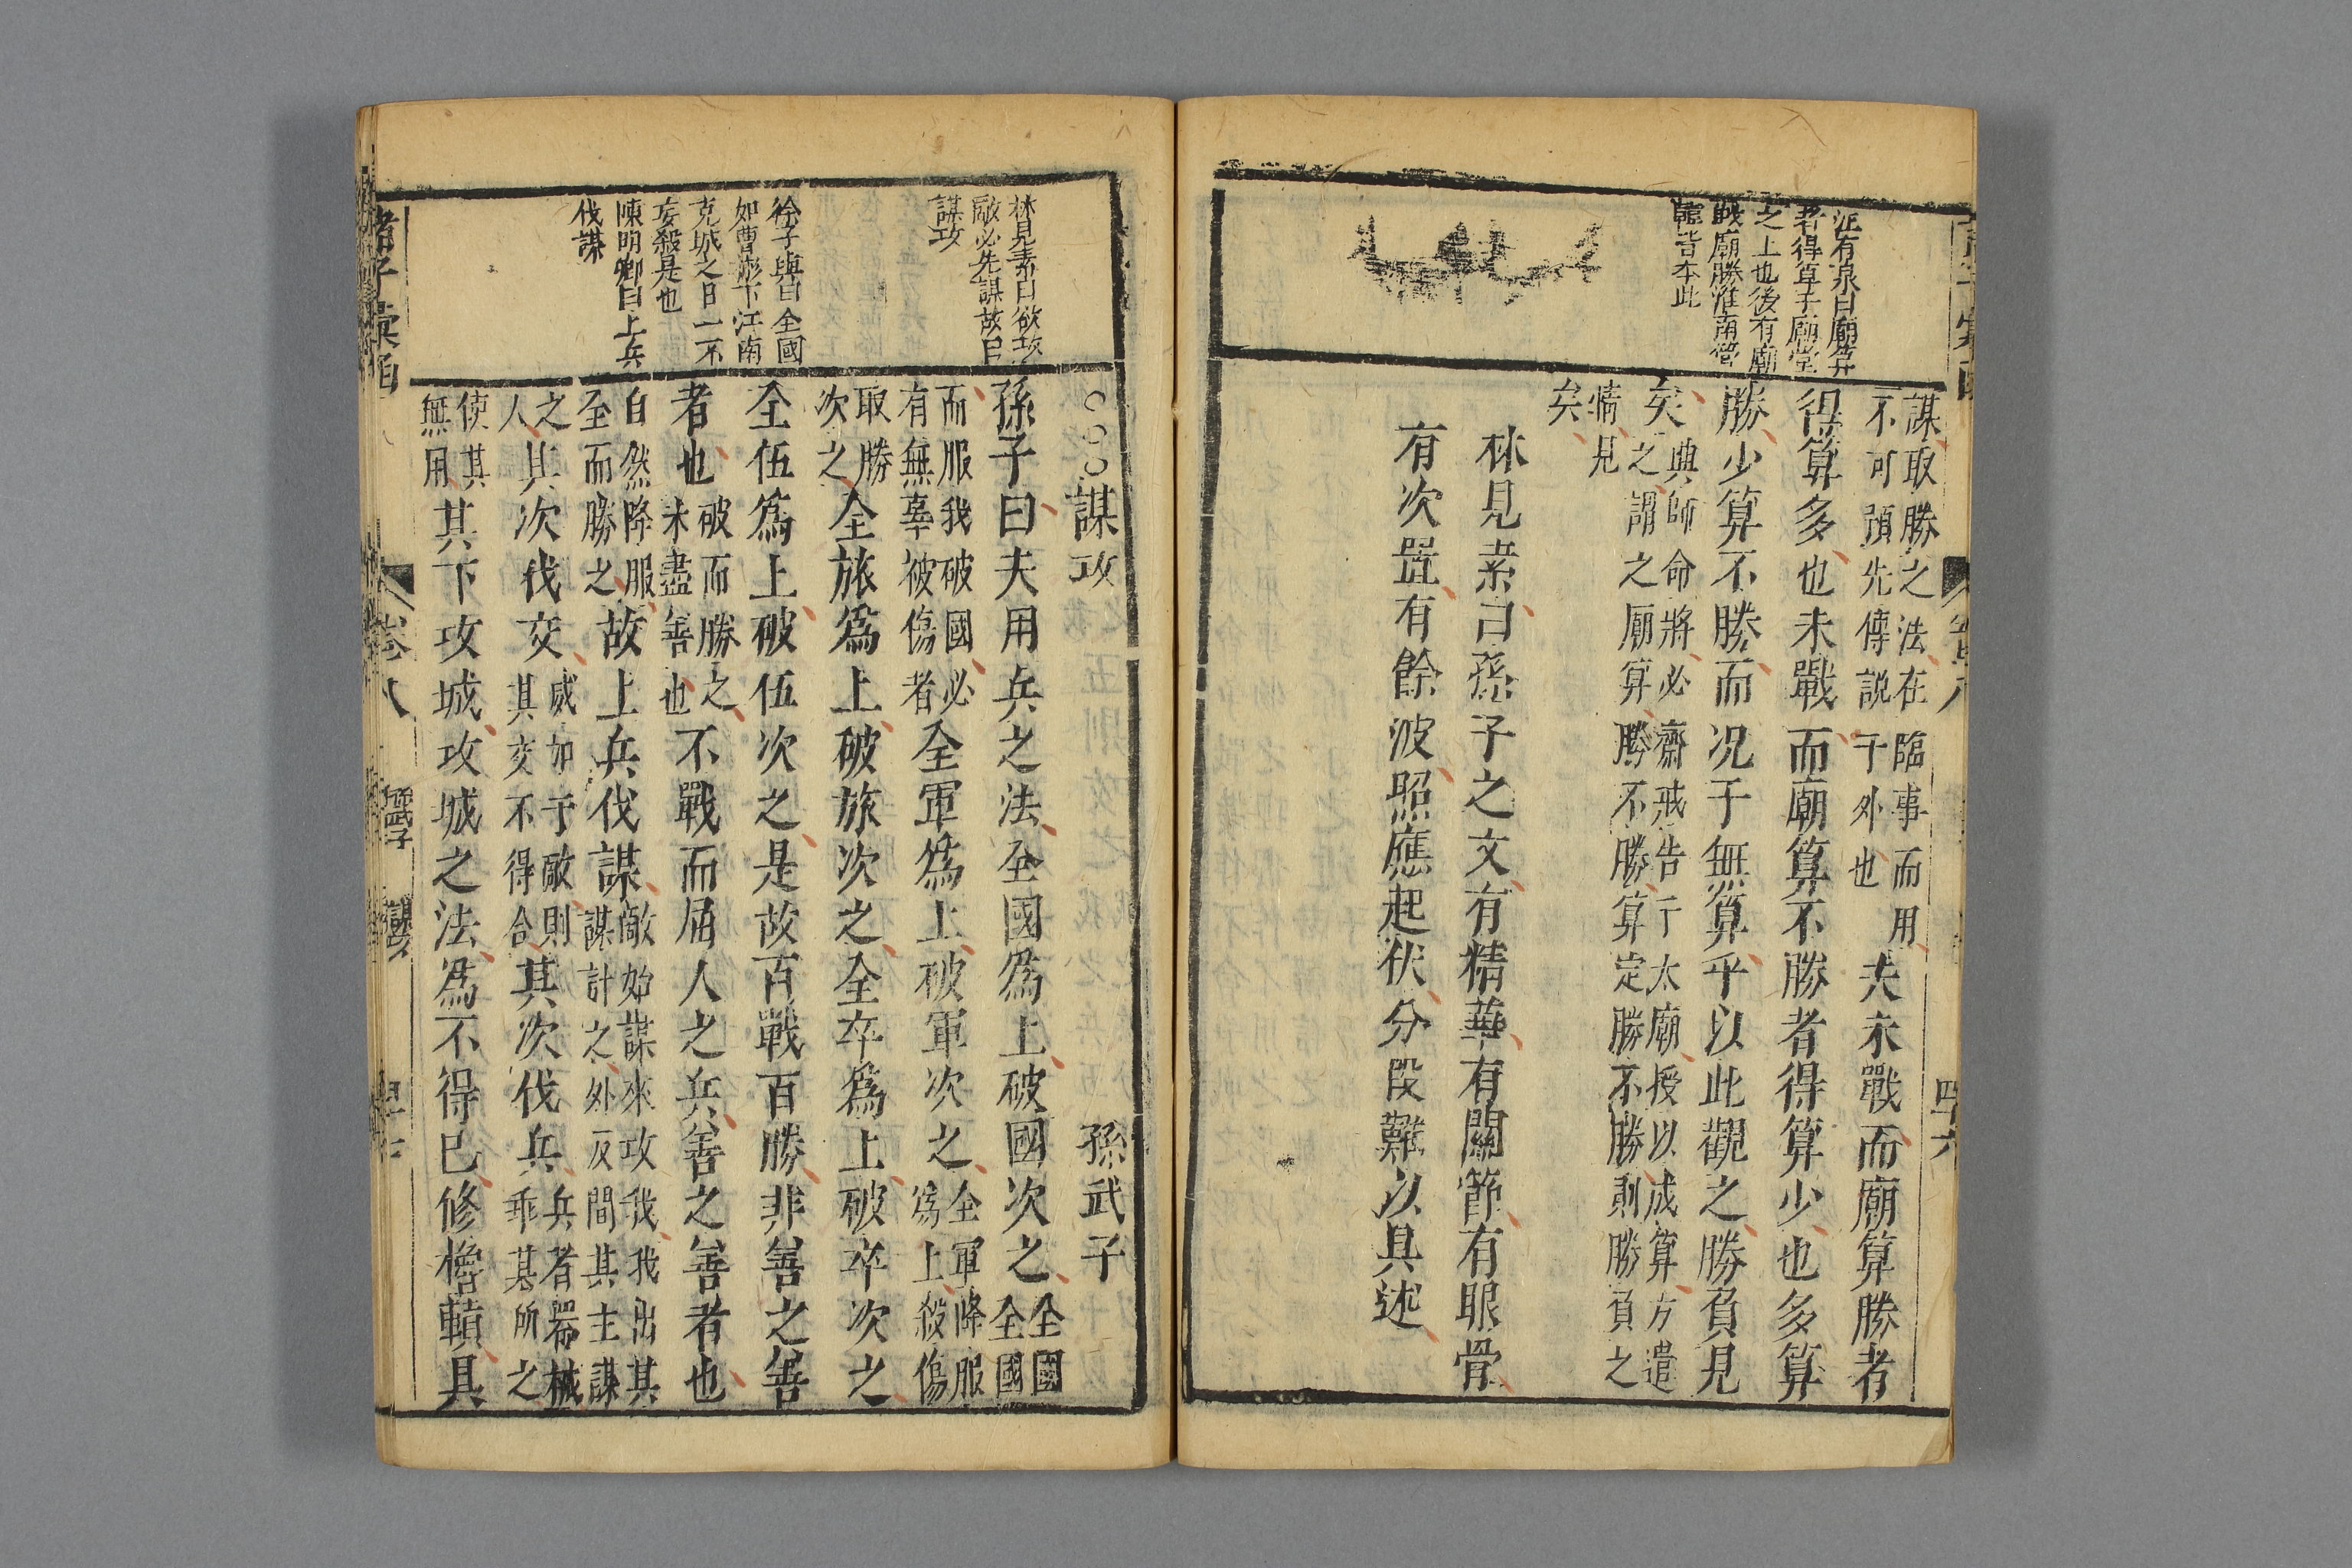 汪有泉曰廟算
者得算于廟堂
之上也後有廟
戰廟勝淮南管
皆本此
謀取勝之法在臨事而用
不可預先傳説于外也
夫未戰而廟算勝者
得算多也未戰而廟算不勝者得算少也多算
勝少算不勝而况于無算乎以此觀之勝負見
矣
典師命將必齋戒告于太廟授以成算方遣
之謂之廟算勝不勝算定勝不勝則勝負之
情見
矣
林見素曰孫子之文有精華有關節有眼骨
有次置有餘波照應起伏分段難以具述
四十六
林見素曰欲攻
敵必先謀故曰
謀攻
徐子與曰全國
如曹彬下江南
克城之日一不
妄殺是也
陳明卿曰上兵
伐謀
○○○謀攻 孫武子
孫子曰夫用兵之法全國爲上破國次之
全國
全國
而服我破國必
有無辜被傷者
全軍爲上破軍次之
全軍降服
爲上殺傷
取勝
次之
全旅爲上破旅次之全卒爲上破卒次之
全伍爲上破伍次之是故百戰百勝非善之善
者也
破而勝之
未盡善也
不戰而屈人之兵善之善者也
自然降服
全而勝之
故上兵伐謀
敵始謀來攻我我出其
謀計之外反間其主謀
之
人
其次伐交
威加于敵則
其交不得合
其次伐兵
兵者器械
乖其所之
使其
無用
其下攻城攻城之法爲不得已修櫓轒具
諸子彙函
卷八